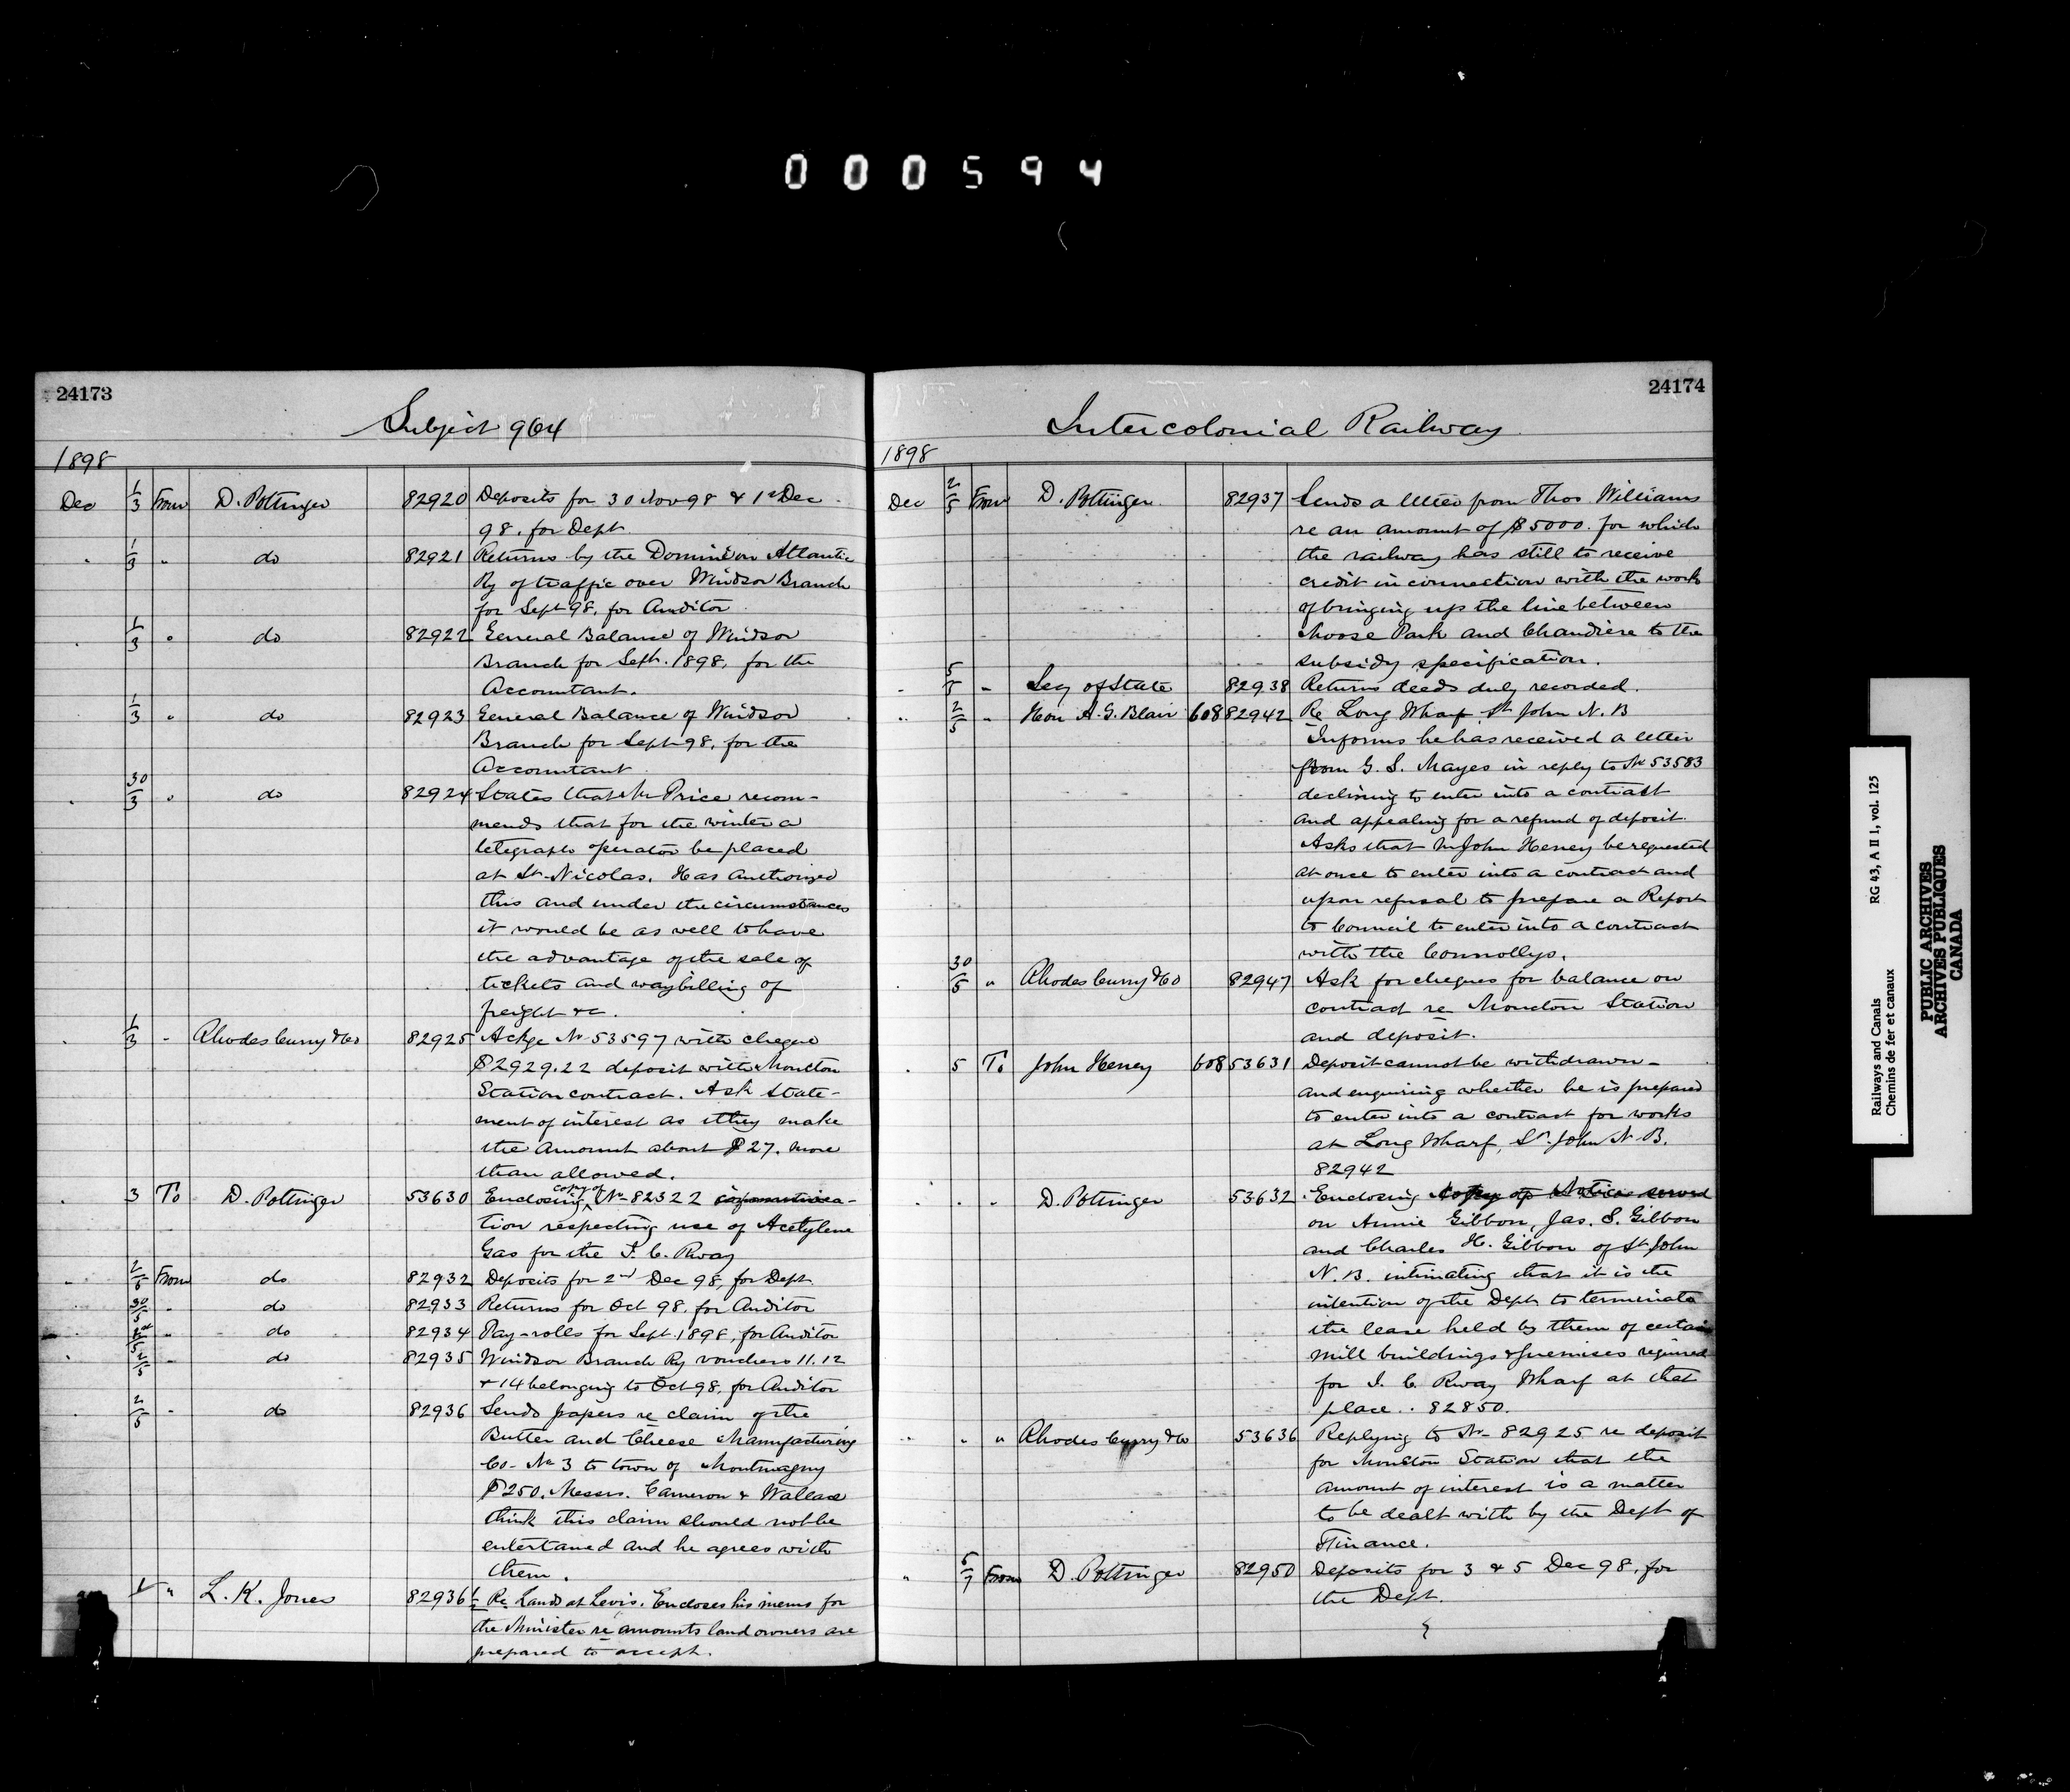 000594
24173
Subject 964
1898
Dec 1/3 From D. Pottinger 82920 Deposits for 30 Nov 98 & 1st Dec
98, for Dept
" 1/3 " do 82921 Returns by the Dominion Atlantic
Ry of traffic over Windsor Branch
for Sept 98, for Auditor
" 1/3 " do 82922 General Balance of Windsor
Branch for Sept. 1898, for the
Accountant.
1/3 " do 82923 General Balance of Windsor
Branch for Sept 98, for the
Accountant
" 30/3 " do 82924 States that Mr Price recom-
mends that for the winter a
telegraph operator be placed
at St. Nicolas. Has authorized
this and under the circumstances
it would be as well to have
the advantage of the sale of
tickets and waybilling of
freight &c.
" 1/3 " Rhodes Curry & Co 82925 Ackge No 53597 with cheque
$2929.22 deposit with Moncton
Station contract. Ask state-
ment of interest as they make
the amount about $27. more
than allowed.
" 3 To D. Pottinger 53630 Enclosing copy of No 82322
tion respecting use of Acetylene
Gas for the I. C. Rway
" 2/5 From do 82932 Deposits for 2nd Dec 98, for Dept
30/5 " do 82933 Returns for Oct 98, for Auditor
" do 82934 Pay-rolls for Sept. 1898, for Auditor
" 2/5 " do 82935 Windsor Branch Ry vouchers 11.12
& 14 belonging to Oct 98, for Auditor
2/5 " do 82936 Sends papers re claim of the
Butter and Cheese Manufacturing
Co. No 3 to town of Montmagny
$250. Messrs. Cameron & Wallace
think this claim should not be
entertained and he agrees with
them.
" L. K. Jones 82936½ Re Lands at Levis. Encloses his memo for
the Minister re amounts land owners are
prepared to accept.
24174
Intercolonial Railway
1898
Dec 2/5 From D. Pottinger 82937 Sends a letter from Thos Williams
re an amount of $5000. for which
the railway has still to receive
credit in connection with the work
of bringing up the line between
Moose Park and Chaudiere to the
subsidy specification.
" 5/5 " Secy of State 82938 Returns deeds duly recorded.
" 2/5 " Hon A. G. Blair 608 82942 Re Long Wharf St John N. B
Informs he has received a letter
from G. S. Mayes in reply to No 53583
declining to enter into a contract
and appealing for a refund of deposit.
Asks that Mr John Heney be requested
at once to enter into a contract and
upon refusal to prepare a Report
to Council to enter into a contract
with the Connollys.
" 30/5 " Rhodes Curry & Co 82947 Ask for cheques for balance on
contract re Moncton Station
and deposit.
" 5 To John Heney 608 53631 Deposit cannot be withdrawn -
and enquiring whether he is prepared
to enter into a contract for works
at Long Wharf, St. John N. B.
82942
" " D. Pottinger 53632 Enclosing copy of Notice served
on Annie Gibbon, Jas. S. Gibbon
and Charles H. Gibbon of St John
N. B. intimating that it is the
intention of the Dept to terminate
the lease held by them of certain
mill buildings & premises required
for I. C. Rway Wharf at that
place. 82850.
" " " Rhodes Curry & Co 53636 Replying to No 82925 re deposit
for Moncton Station that the
amount of interest is a matter
to be dealt with by the Dept of
Finance.
" 5/7 From D. Pottinger 82950 Deposits for 3 & 5 Dec 98, for
the Dept.
Railways and Canals RG 43, A II 1, vol. 125
Chemins de fer et canaux
PUBLIC ARCHIVES
ARCHIVES PUBLIQUES
CANADA